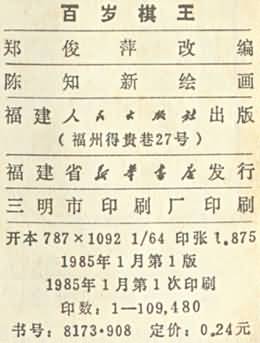 百岁棋王
郑俊萍改编
陈知新绘画
福建人民出版社出版
(福州得贵巷27号)
福建省新华书店发行
三明市印刷厂印刷
开本787×1092 1/64 印张1.875
1985年1月第1版
1985年1月第1次印刷
印数:1—109,480
书号:8173·908 定价:0.24元